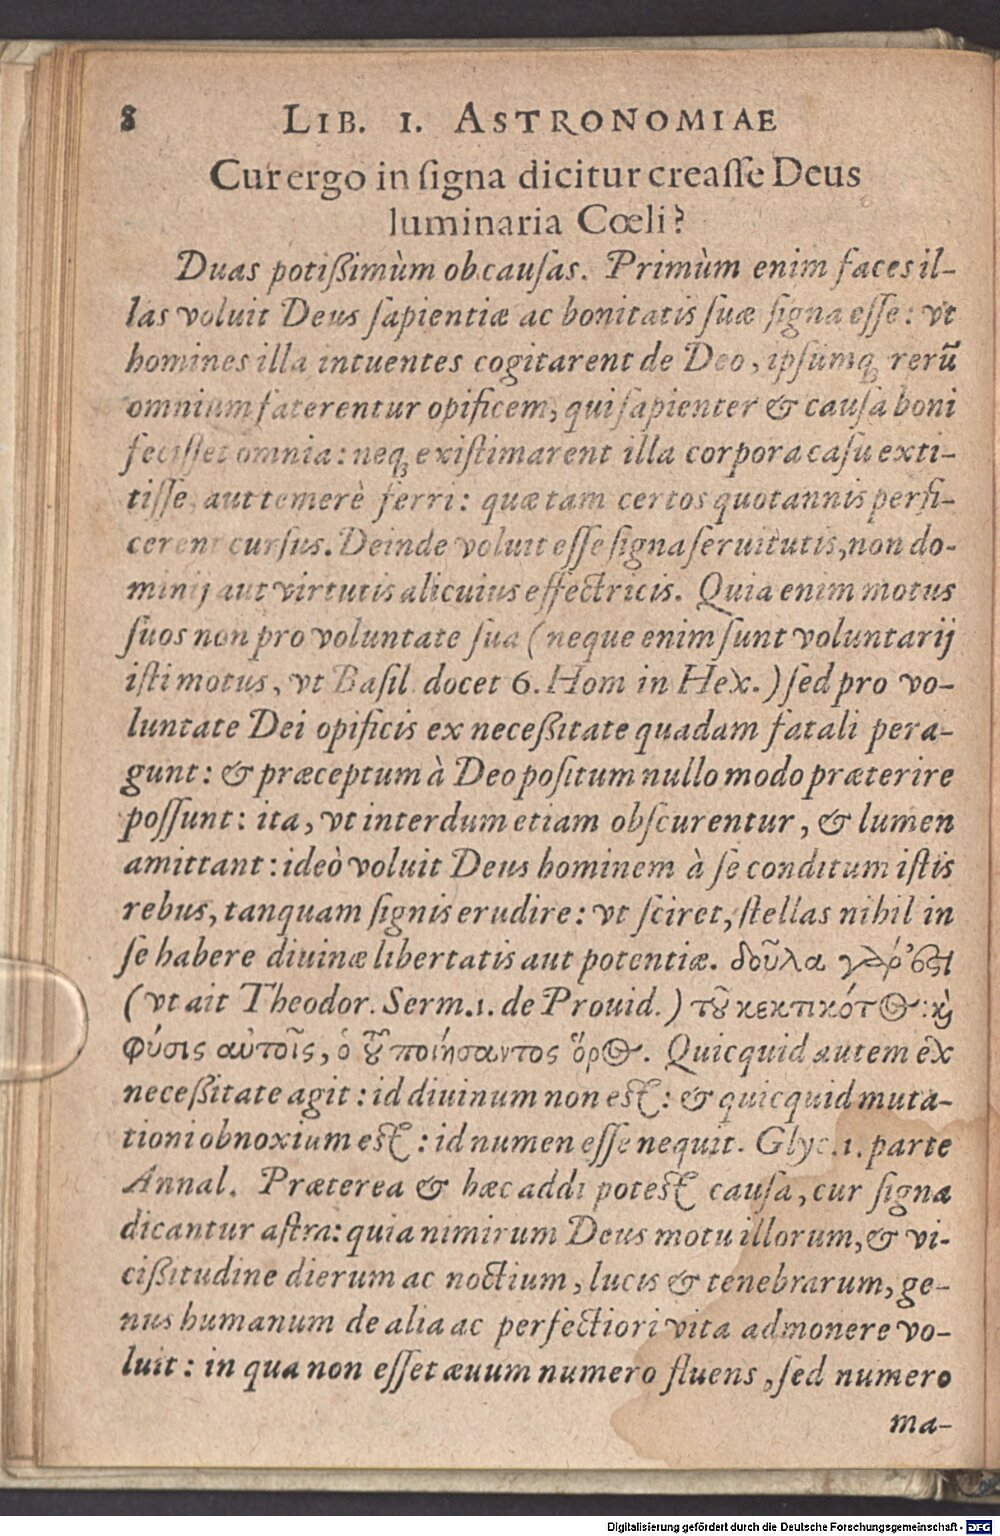 8 LIB. I. ASTRONOMIAE
Cur ergo in ſigna dicitur creaſſe Deus
luminaria Cœli?
Duas potißimùm ob cauſas. Primùm enim faces il-
las voluit Deus ſapientiæ ac bonitatis ſuæ ſigna eſſe: vt
homines illa intuentes cogitarent de Deo, ipſumq́ꝫ rerū
omnium faterentur opificem, qui ſapienter & cauſa boni
feciſſet omnia: neqꝫ exiſtimarent illa corpora caſu exti-
tiſſe, aut temerè ferri: quæ tam certos quotannis perfi-
cerent curſus. Deinde voluit eſſe ſigna ſeruitutis, non do-
minij aut virtutis alicuius effectricis. Quia enim motus
ſuos non pro voluntate ſua (neque enim ſunt voluntarij
iſti motus, vt Baſil docet 6. Hom in Hex.) ſed pro vo-
luntate Dei opificis ex neceßitate quadam fatali pera-
gunt: & præceptum à Deo poſitum nullo modo præterire
poſſunt: ita, vt interdum etiam obſcurentur, & lumen
amittant: ideò voluit Deus hominem à ſe conditum iſtis
rebus, tanquam ſignis erudire: vt ſciret, ſtellas nihil in
ſe habere diuinæ libertatis aut potentiæ. δοῦλα γάρ ἐστι
(vt ait Theodor. Serm. 1. de Prouid.) τοῦ κεκτικότος: καὶ
φύσις αὐτοῖς, ὁ τοῦ ποιήσαντος ὅρος. Quicquid autem ex
neceßitate agit: id diuinum non eſt: & quicquid muta-
tioni obnoxium eſt: id numen eſſe nequit. Glyc. 1. parte
Annal. Præterea & hæc addi poteſt cauſa, cur ſigna
dicantur aſtra: quia nimirum Deus motu illorum, & vi-
cißitudine dierum ac noctium, lucis & tenebrarum, ge-
nus humanum de alia ac perfectiori vita admonere vo-
luit: in qua non eſſet æuum numero fluens, ſed numero
ma-
Digitalisierung gefördert durch die Deutsche Forschungsgemeinschaft - DFG